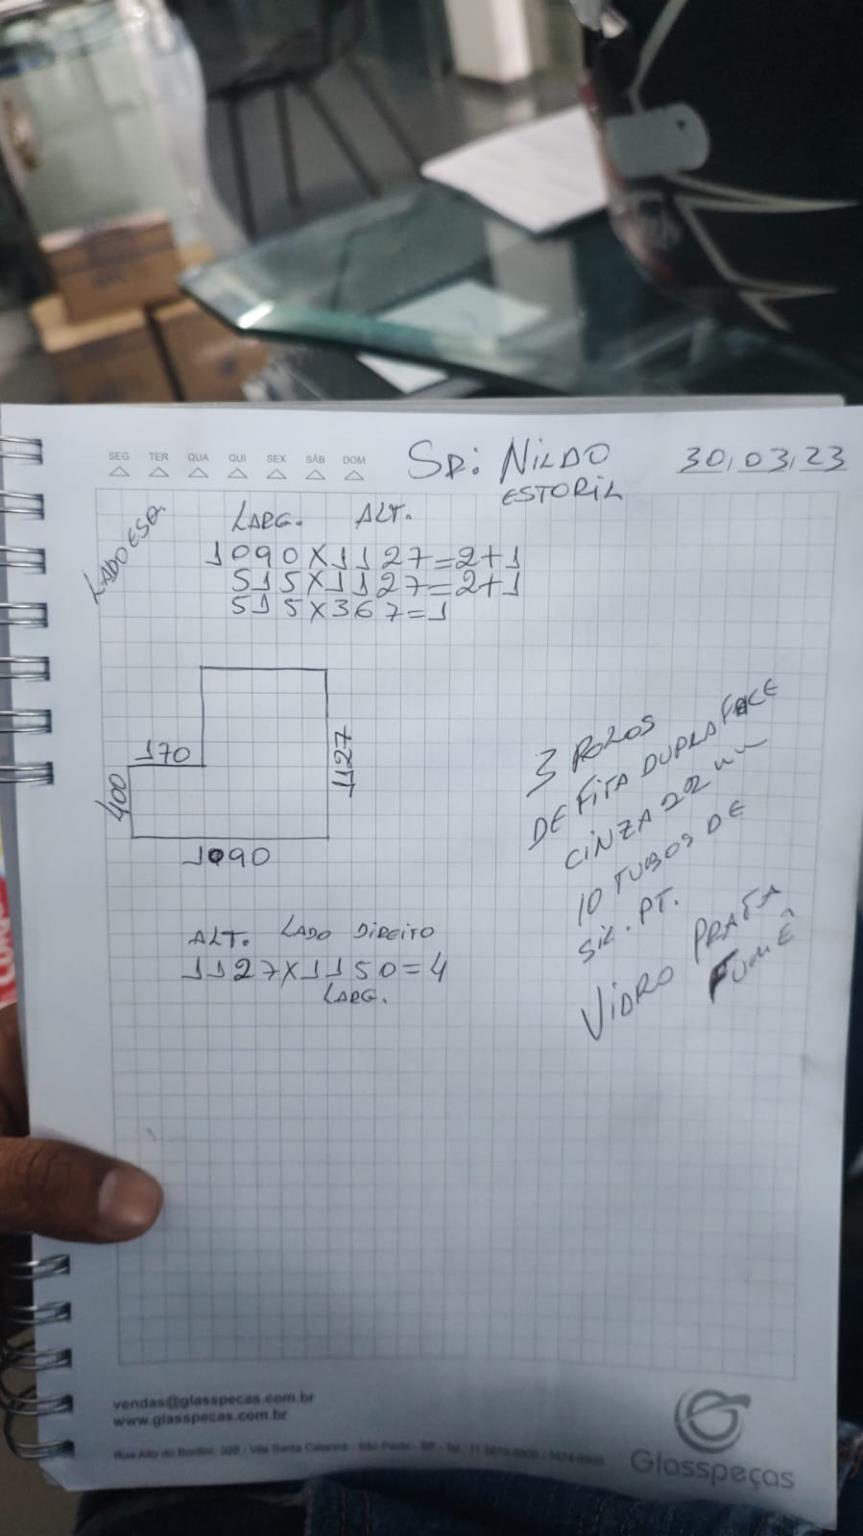 SEG TER QUA QUI SEX SÁB DOM
SR: NILDO
30,03,23
ESTORIL
LADO ESQ.
LARG. ALT.
1090X1127=2+1
515X1127=2+1
515X367=1
170
400
1127
1090
3 ROLOS
DE FITA DUPLA FACE
CINZA 22 mm
10 TUBOS DE
SIL. PT.
VIDRO PRATA
FUMÊ
ALT. LADO DIREITO
1127X1150=4
LARG.
vendas@glasspecas.com.br
www.glasspecas.com.br
Vila Santa Catarina - São Paulo - SP - Tel.
Glasspeças